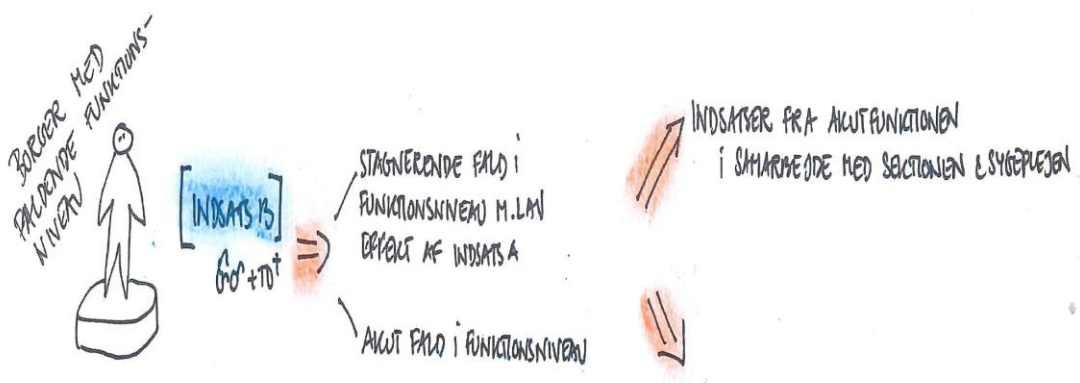 BORGER MED
FALDENDE FUNKTIONS-
NIVEAU
[INDSATS B]
+TD†
STAGNERENDE FALD i
FUNKTIONSNIVEAU M. LAV
EFFEKT AF INDSATS A
AKUT FALD i FUNKTIONSNIVEAU
INDSATSER FRA AKUTFUNKTIONEN
i SAMARBEJDE MED SEKTIONEN & SYGEPLEJEN